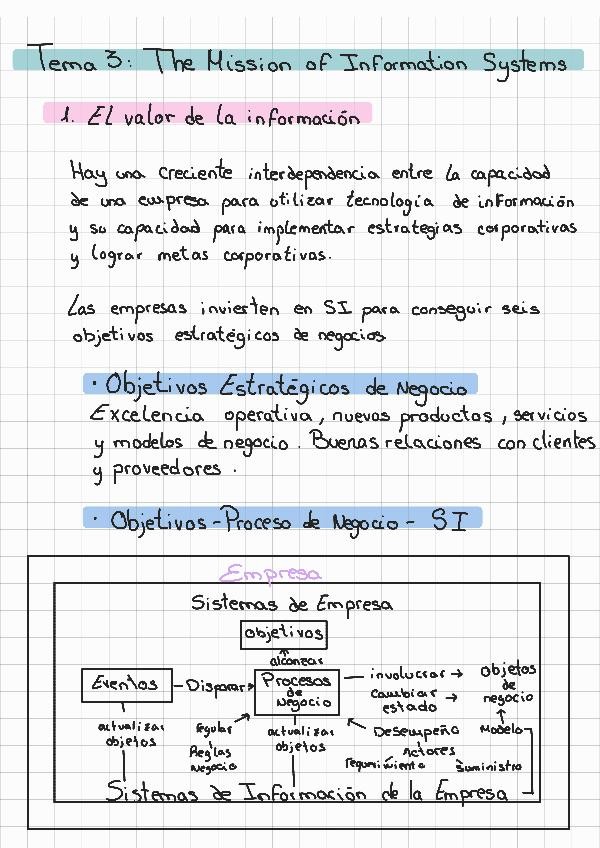 Tema 3: The Mission of Information Systems
1. El valor de la información
Hay una creciente interdependencia entre la capacidad
de una empresa para utilizar tecnología de información
y su capacidad para implementar estrategias corporativas
y lograr metas corporativas.
Las empresas invierten en SI para conseguir seis
objetivos estratégicos de negocios
· Objetivos Estratégicos de Negocio
Excelencia operativa, nuevos productos, servicios
y modelos de negocio. Buenas relaciones con clientes
y proveedores.
· Objetivos-Proceso de Negocio- SI
Empresa
Sistemas de Empresa
Objetivos
alcanzar
Eventos
Disparar
Procesos
de
Negocio
involucrar
cambiar
estado
objetos
de
negocio
actualizar
objetos
regular
Reglas
Negocio
actualizar
objetos
Desempeño
Actores
Modelo
requerimiento
Suministro
Sistemas de Información de la Empresa